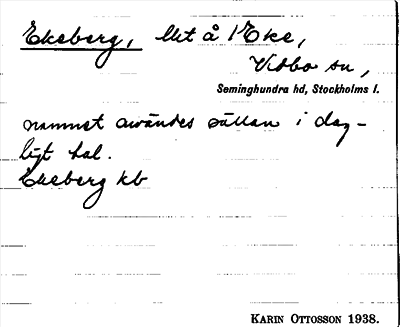 Ekeberg, lht å 1 Eke,
Vidbo sn,
Seminghundra hd, Stockholms l.
namnet användes sällan i dag-
ligt tal.
Ekeberg kb
KARIN OTTOSSON 1938.